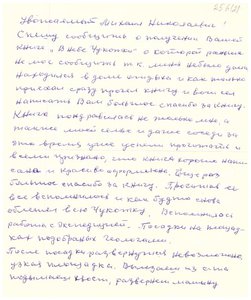 Уважаемый Михаил Николаевич!
Спешу сообщить о получении Вашей
книги „В небе Чукотки" о которой раньше
не мог сообщить т к меня не было дома
находился в доме отдыха и как только
приехал сразу прочёл книгу и вот сел
написать Вам большое спасибо за книгу.
Книга понравилась не только мне, а
также моей семье и даже соседи за
это время уже успели прочитать и
всеми признано, что книга хорошо напи
сана и красиво оформлена. Еще раз
большое спасибо за книгу. Прочитал и
все вспомнилось и как будто снова
облетел всю Чукотку. Вспомнилась
работа с экспедицией. Посадки на площад-
ках подобраных геологами.
После посадки развернутся невозможно,
узкая площадка. Вылезаем из с-та
подымаем хвост, развернем машину